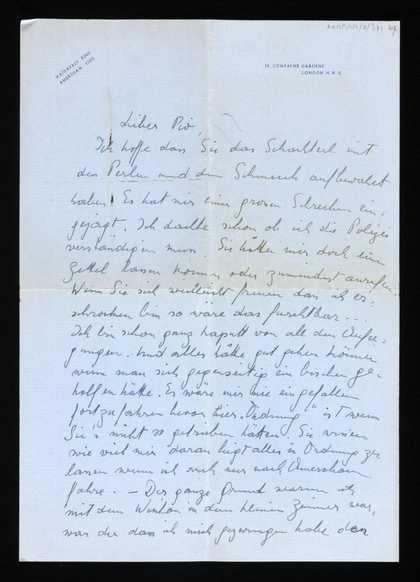 14, COMPAYNE GARDENS
LONDON N.W.6
MAIDAVALE 
AMERSHAM 
Lieber Pio,
Ich hoffe dass Sie das Schachterl mit
den Perlen und dem Schmuck aufbewahrt
haben! Es hat mir einen grossen Schrecken ein-
gejagt. Ich dachte schon ob ich die Polizei
verständigen muss. Sie hätten mir doch einen
Zettel lassen können oder zumindest anrufen.
Wenn Sie sich vielleicht freuen dass ich er-
schrocken bin so wäre das furchtbar...
Ich bin schon ganz kaputt von all den Aufre-
gungen. Und alles hätte gut gehen können
wenn man sich gegenseitig ein bischen ge-
holfen hätte. Es wäre mir nie eingefallen
fortzufahren bevor hier "Ordnung" ist wenn
Sie's nicht so getrieben hätten. Sie wissen
wie viel mir daran liegt alles in Ordnung zu
lassen wenn ich auch nur nach Amersham
fahre. — Der ganze Grund warum ich
mit dem in dem kleinen Zimmer war,
war der dass ich mich gezwungen habe den